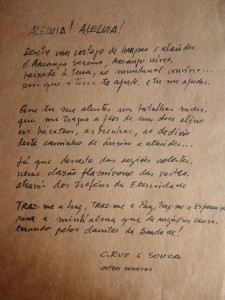 ALELUIA! ALELUIA!
Dentre um cortejo de harpas e alaúdes
Ó Arcanjo sereno, Arcanjo níveo,
baixaste à terra, ao mundanal convívio...
Pois que a terra te ajude, e tu me ajudes.
Que tu me alentes nas batalhas rudes,
que me tragas a flor de um doce alívio
aos báratros, às brenhas, ao declívio
deste caminho de ânsias e ataúdes...
Já que desceste das regiões celestes,
nesse clarão flamívomo das vestes,
através dos troféus da Eternidade
Traz-me a Luz, Traz-me a Paz, Traz-me a Esperança
para a minh'alma que de angústias cansa,
errando pelos claustros da Saudade!
CRUZ E SOUZA
OUTROS SONETOS